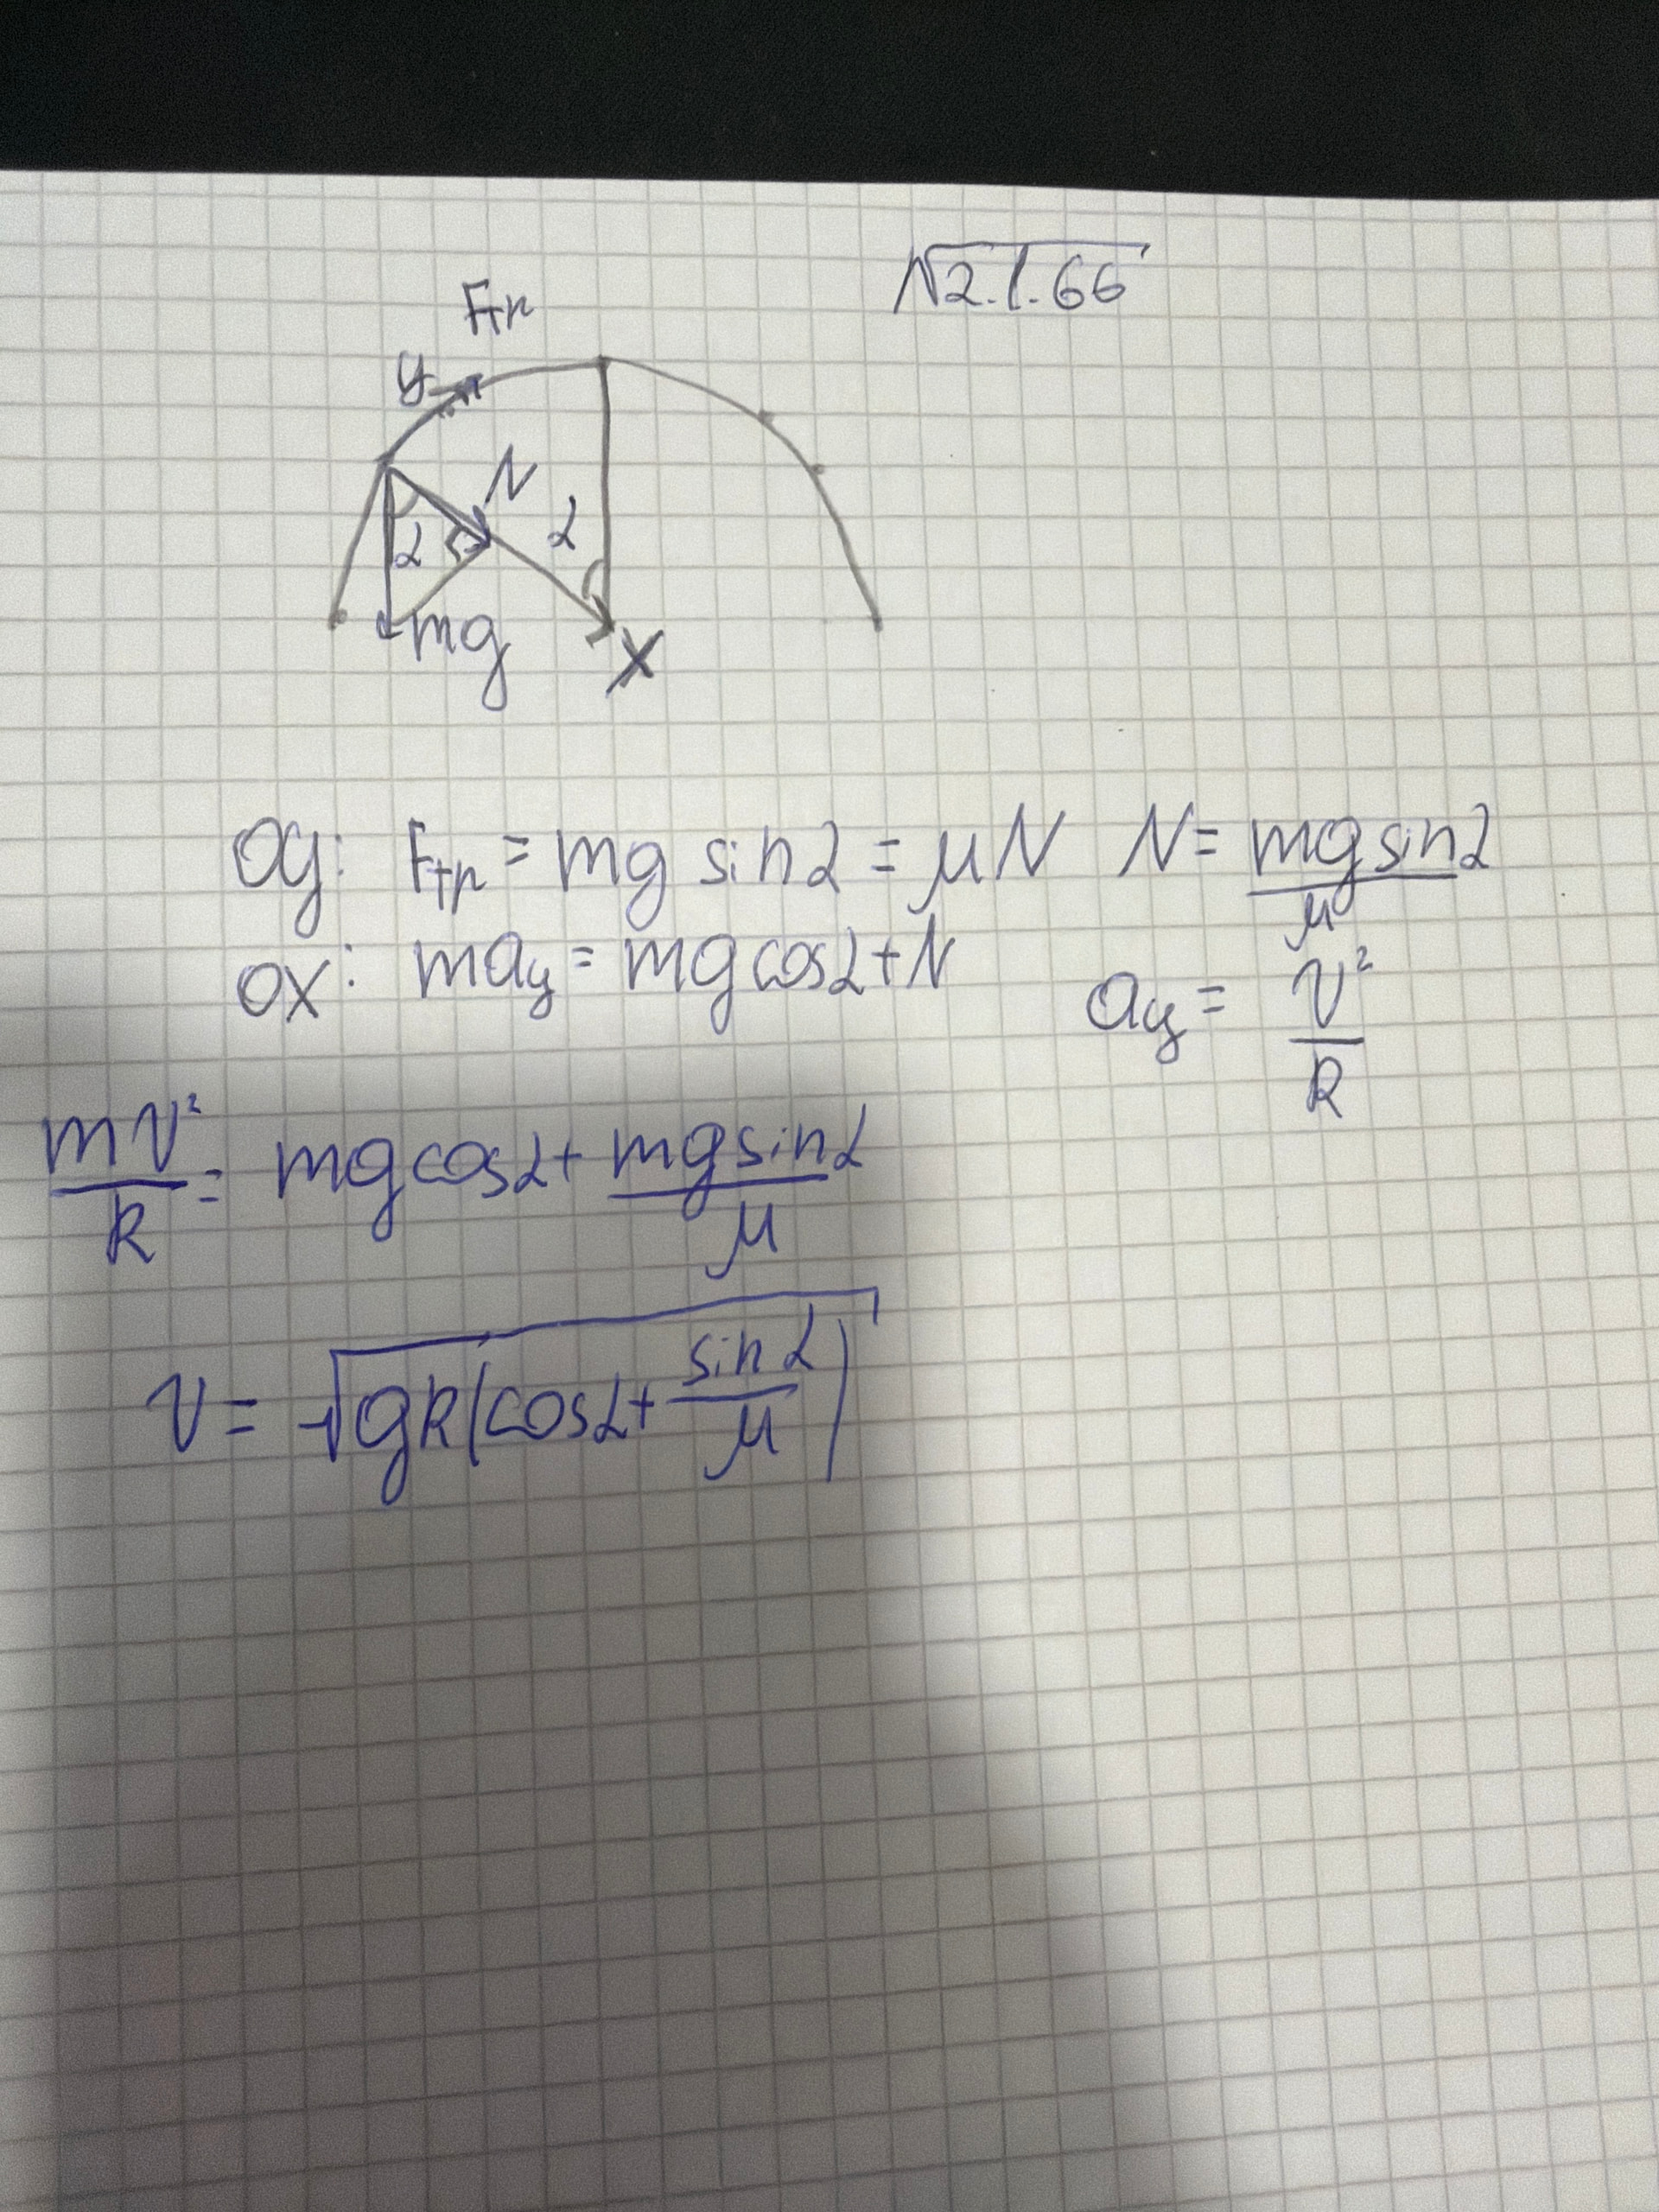 √2.1.66
Fтр
y
N
α
α
mg
X
Oy: Fтр = mg sinα = μN N = mg sinα / μ
OX: maу = mg cosα + N aу = v² / R
mv² / R = mg cosα + mg sinα / μ
v = √gR(cosα + sinα / μ)